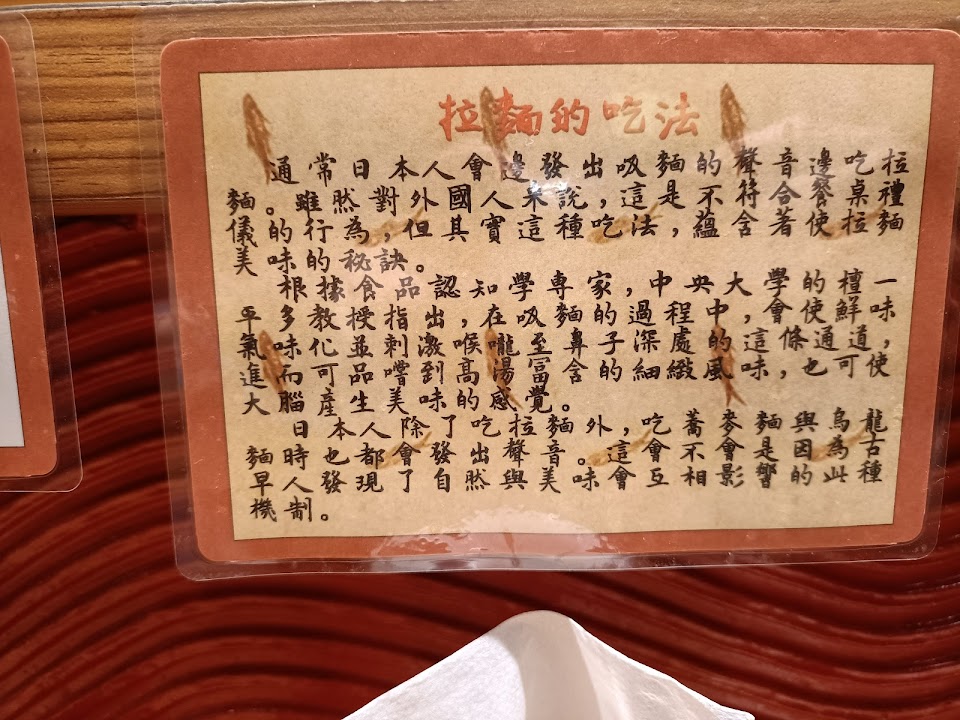 拉麵的吃法
通常日本人會邊發出吸麵的聲音邊吃拉
麵。雖然對外國人來說,這是不符合餐桌禮
儀的行為,但其實這種吃法,蘊含著使拉麵
美味的秘訣。
根據食品認知學專家,中央大學的檀一
平多教授指出,在吸麵的過程中,會使鮮味
氣味化並刺激喉嚨至鼻子深處的這條通道,
進而可品嚐到高湯富含的細緻風味,也可使
大腦產生美味的感覺。
日本人除了吃拉麵外,吃蕎麥麵與烏龍
麵時也都會發出聲音。這會不會是因為古
早人發現了自然與美味會互相影響的此種
機制。